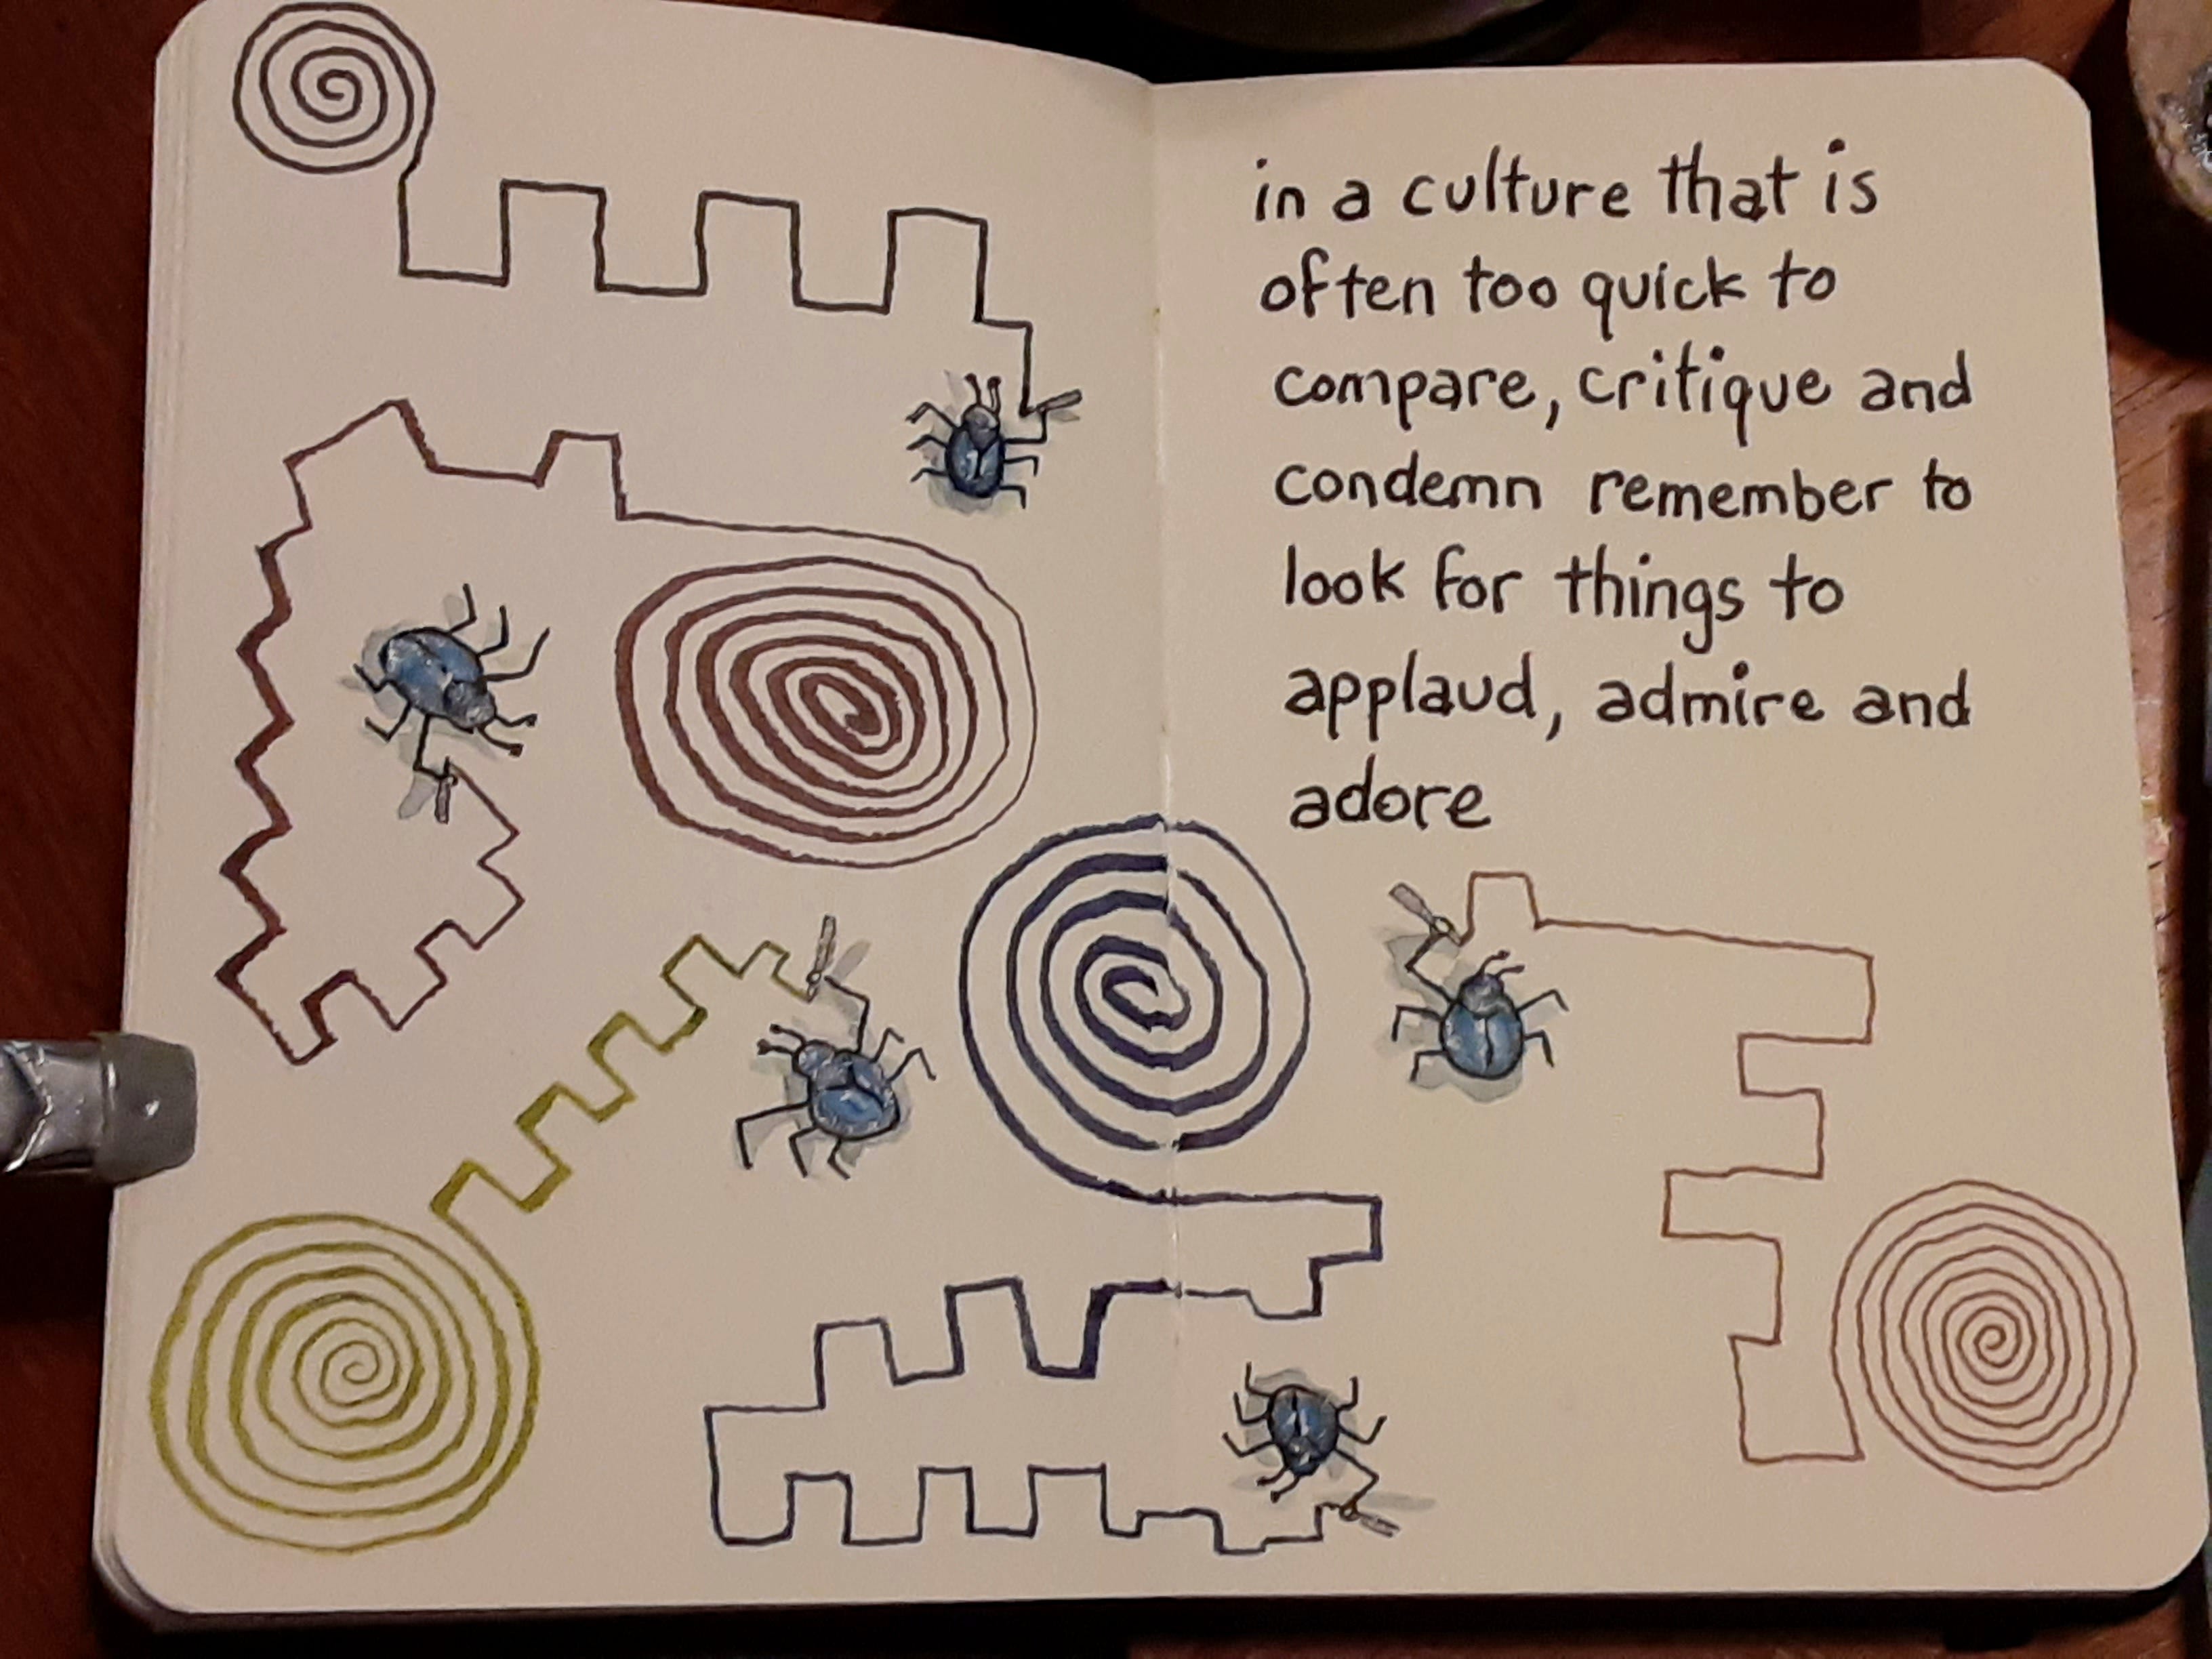 in a culture that is
often too quick to
compare, critique and
condemn remember to
look for things to
applaud, admire and
adore